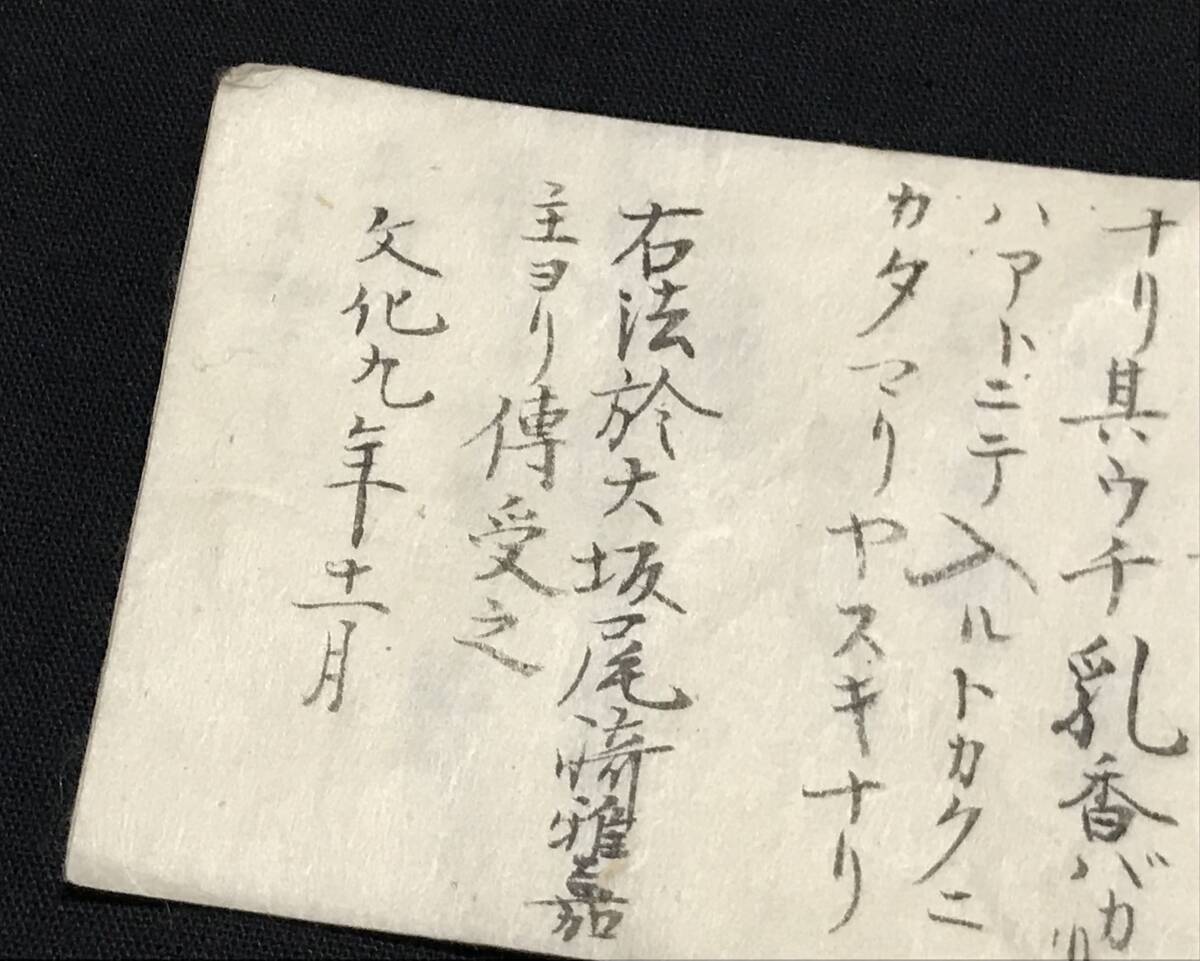 ナリ其ウチ乳香バカリ
ハアトニテ入ルトカクニ
カタマリヤスキナリ
右法於大坂尾﨑雅嘉
主ヨリ傳受之
文化九年十一月